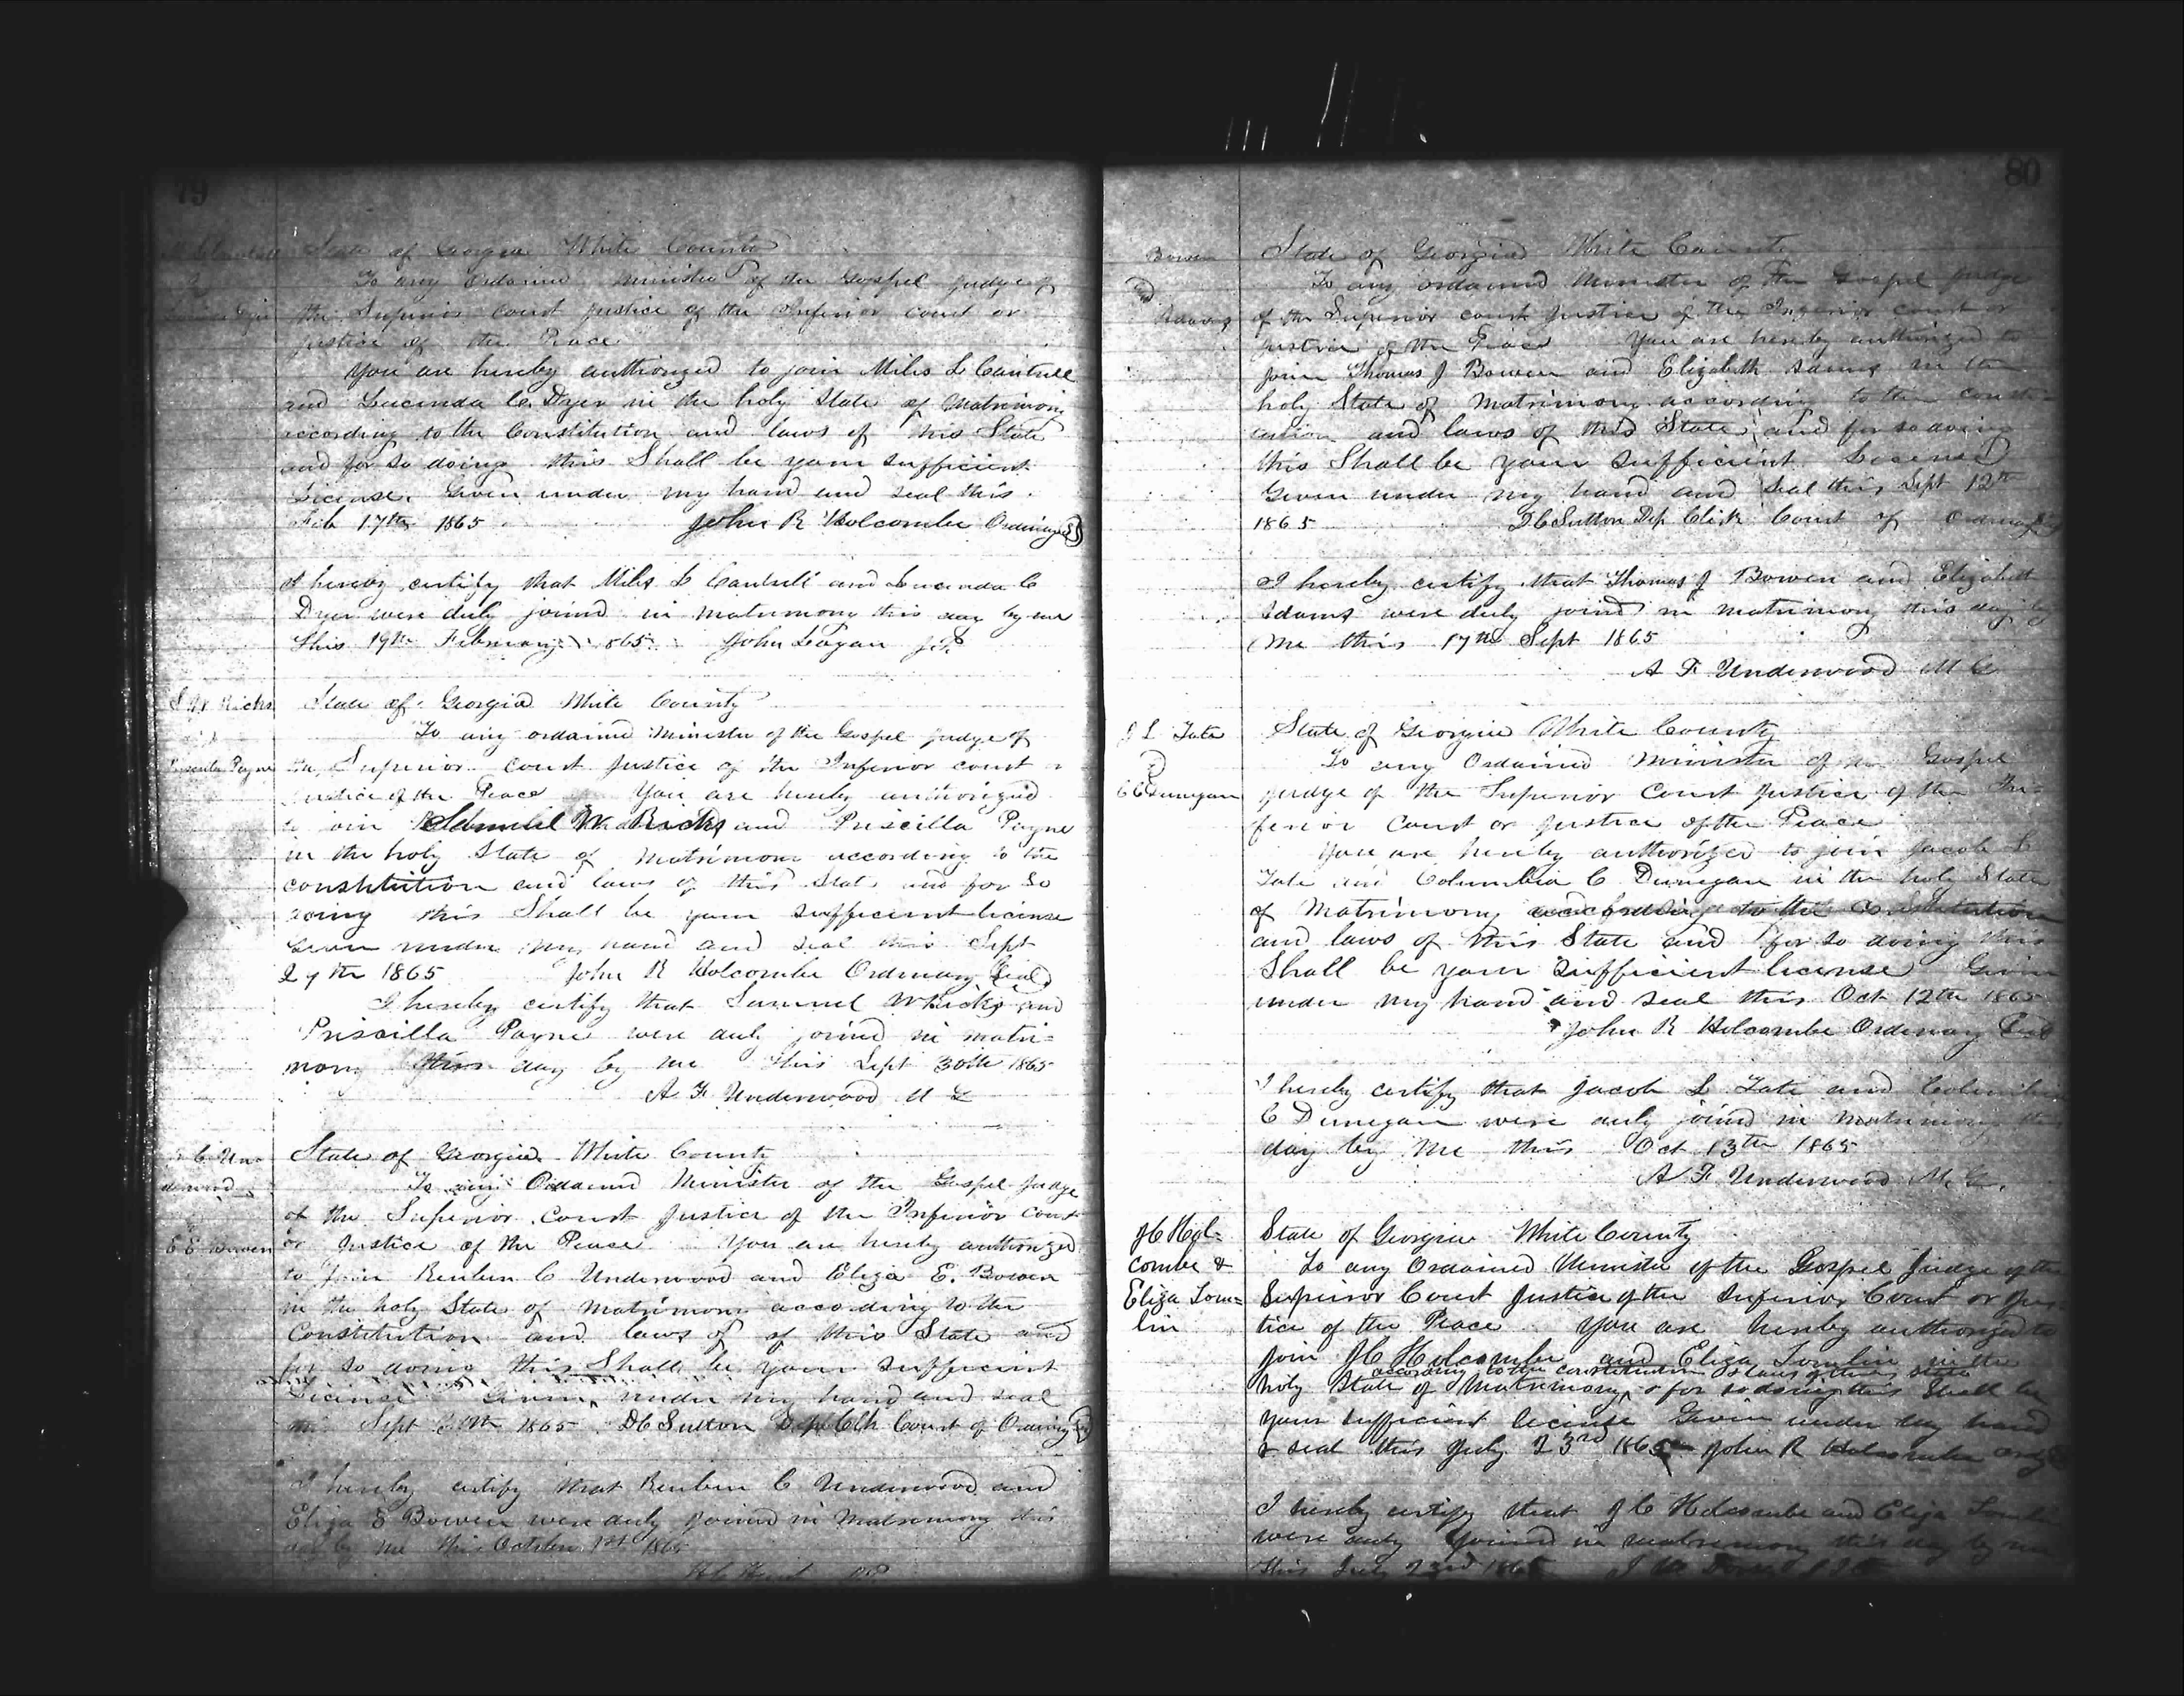 79
State of Georgia White County
To any Ordained Minister of the Gospel Judge of
the Superior Court Justice of the Inferior Court or
Justice of the Peace
You are hereby authorized to join Miles L Cantrell
and Lucinda C. Dyer in the holy State of Matrimony
according to the Constitution and laws of this State
and for so doing this Shall be your sufficient
License. Given under my hand and seal this
Feb 17th 1865 John R Holcombe Ordinary
I hereby certify that Miles L Cantrell and Lucinda C
Dyer were duly joined in matrimony this day by me
This 19th February 1865 John Logan J P
S W Ricks
Priscilla Payne
State of Georgia White County
To any ordained minister of the Gospel Judge of
the Superior court Justice of the Inferior court
Justice of the Peace You are hereby authorized
to join Samuel W Ricks and Priscilla Payne
in the holy State of Matrimony according to the
constitution and laws of this State and for so
doing this Shall be your sufficient license
Given under my hand and seal this Sept
29th 1865 John R Holcombe Ordinary Seal
I hereby certify that Samuel W Ricks and
Priscilla Payne were duly joined in matri=
mony this day by me This Sept 30th 1865
A F Underwood M G
R C Un=
derwood
E E Bowen
State of Georgia White County
To any Ordained Minister of the Gospel Judge
of the Superior Court Justice of the Inferior Court
or Justice of the Peace You are hereby authorized
to join Reuben C Underwood and Eliza E. Bowen
in the holy State of Matrimony according to the
Constitution and laws of of this State and
for so doing this Shall be your sufficient
License Given under my hand and seal
this Sept 1865 D C Sutton Dep Clk Court of Ordinary
I hereby certify that Reuben C Underwood and
Eliza E Bowen were duly joined in Matrimony this
day by me this October 1st 1865
80
Bowen
&
Adams
State of Georgia White County
To any ordained Minister of the Gospel Judge
of the Superior court Justice of the Inferior court or
Justice of the Peace You are hereby authorized to
join Thomas J Bowen and Elizabeth Adams in the
holy State of Matrimony according to the consti=
tution and laws of this State and for so doing
this Shall be your sufficient License
Given under my hand and Seal this Sept 12th
1865 D C Sutton Dep Clerk Court of Ordinary
I hereby certify that Thomas J Bowen and Elizabeth
Adams were duly joined in matrimony this day by
me this 17th Sept 1865
A F Underwood M G
J L Tate
&
C C Dunegan
State of Georgia White County
To any Ordained Minister of the Gospel
Judge of the Superior Court Justice of the In=
ferior Court or Justice of the Peace
You are hereby authorized to join Jacob L
Tate and Columbia C Dunegan in the holy State
of Matrimony according to the Constitution
and laws of this State and for so doing this
Shall be your Sufficient license Given
under my hand and seal this Oct 12th 1865
John R Holcombe Ordinary Seal
I hereby certify that Jacob L Tate and Columbia
C Dunegan were duly joined in matrimony this
day by me this Oct 13th 1865
A F Underwood M. G.
J C Hol=
combe &
Eliza Tom=
lin
State of Georgia White County
To any Ordained Minister of the Gospel Judge of the
Superior Court Justice of the Inferior Court or Jus=
tice of the Peace You are hereby authorized to
join J C Holcombe and Eliza Tomlin in the
according to the constitution & laws of this State
holy State of Matrimony & for so doing this Shall be
your sufficient license Given under my hand
& seal this July 23rd 1865 John R Holcombe Ordy
I hereby certify that J C Holcombe and Eliza Tomlin
were duly joined in matrimony this day by me
This July 23rd 1865